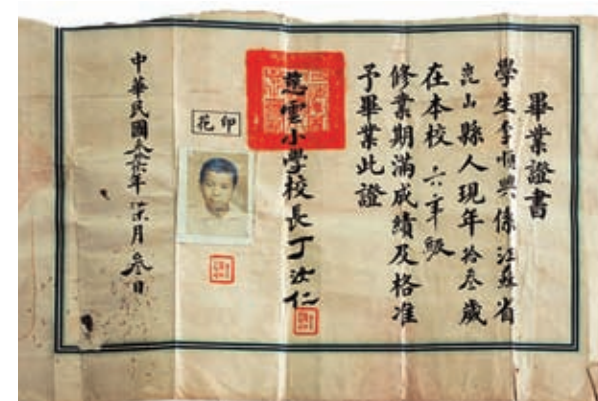 畢業證書
學生李順興係江蘇省
崑山縣人現年拾叁歲
在本校六年級
修業期滿成績及格准
予畢業此證
慈雲小學校長丁汝仁
印花
中華民國叁年月叁日